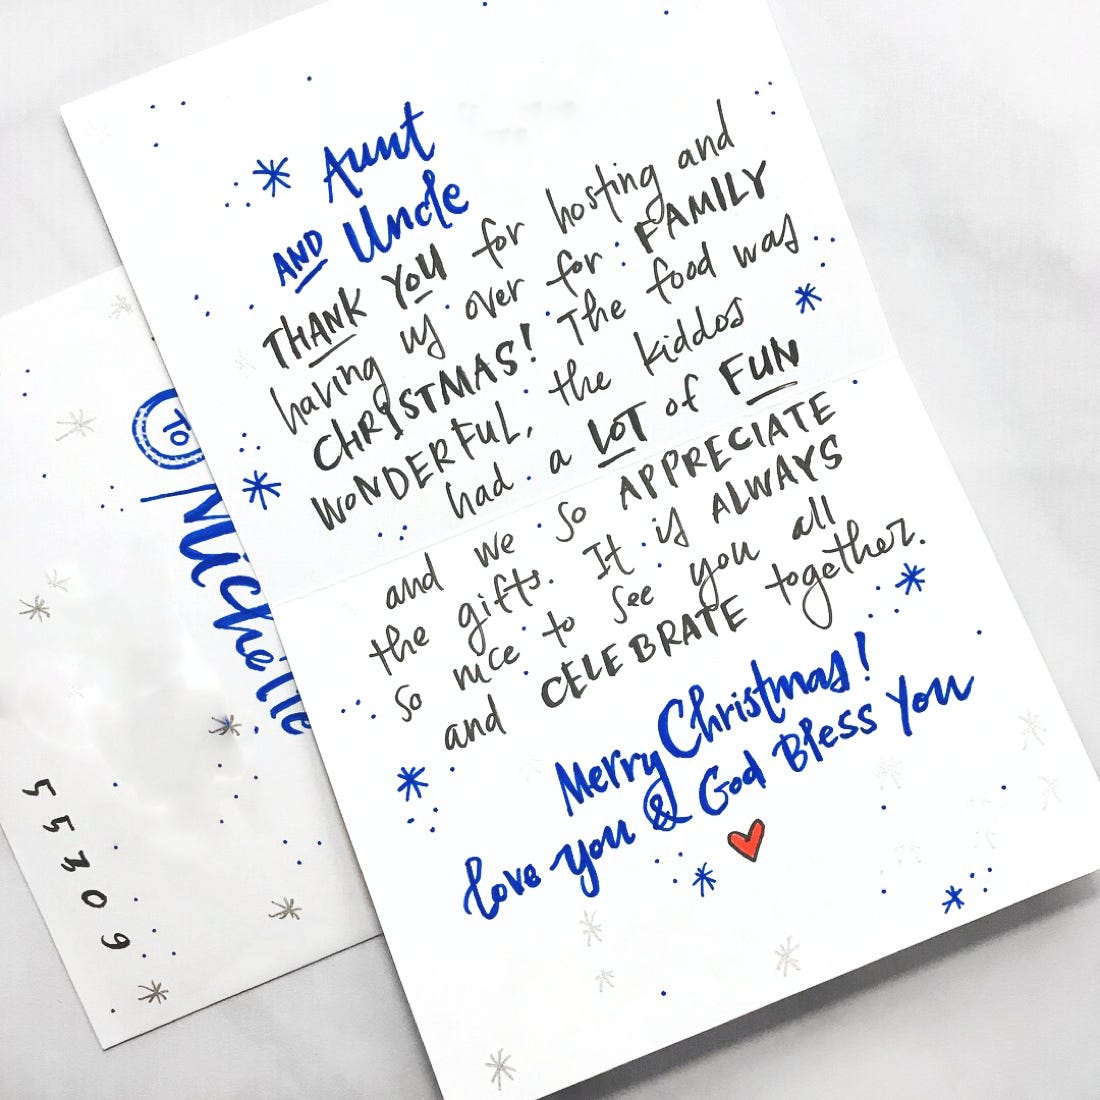 Aunt
AND Uncle
THANK YOU for hosting and
having us over for FAMILY
CHRISTMAS! The food was
WONDERFUL, the kiddos
had a LOT of FUN
and we so APPRECIATE
the gifts. It is ALWAYS
so nice to see you all
and CELEBRATE together.
Merry Christmas!
love you & God Bless You
TO
Michelle
55309